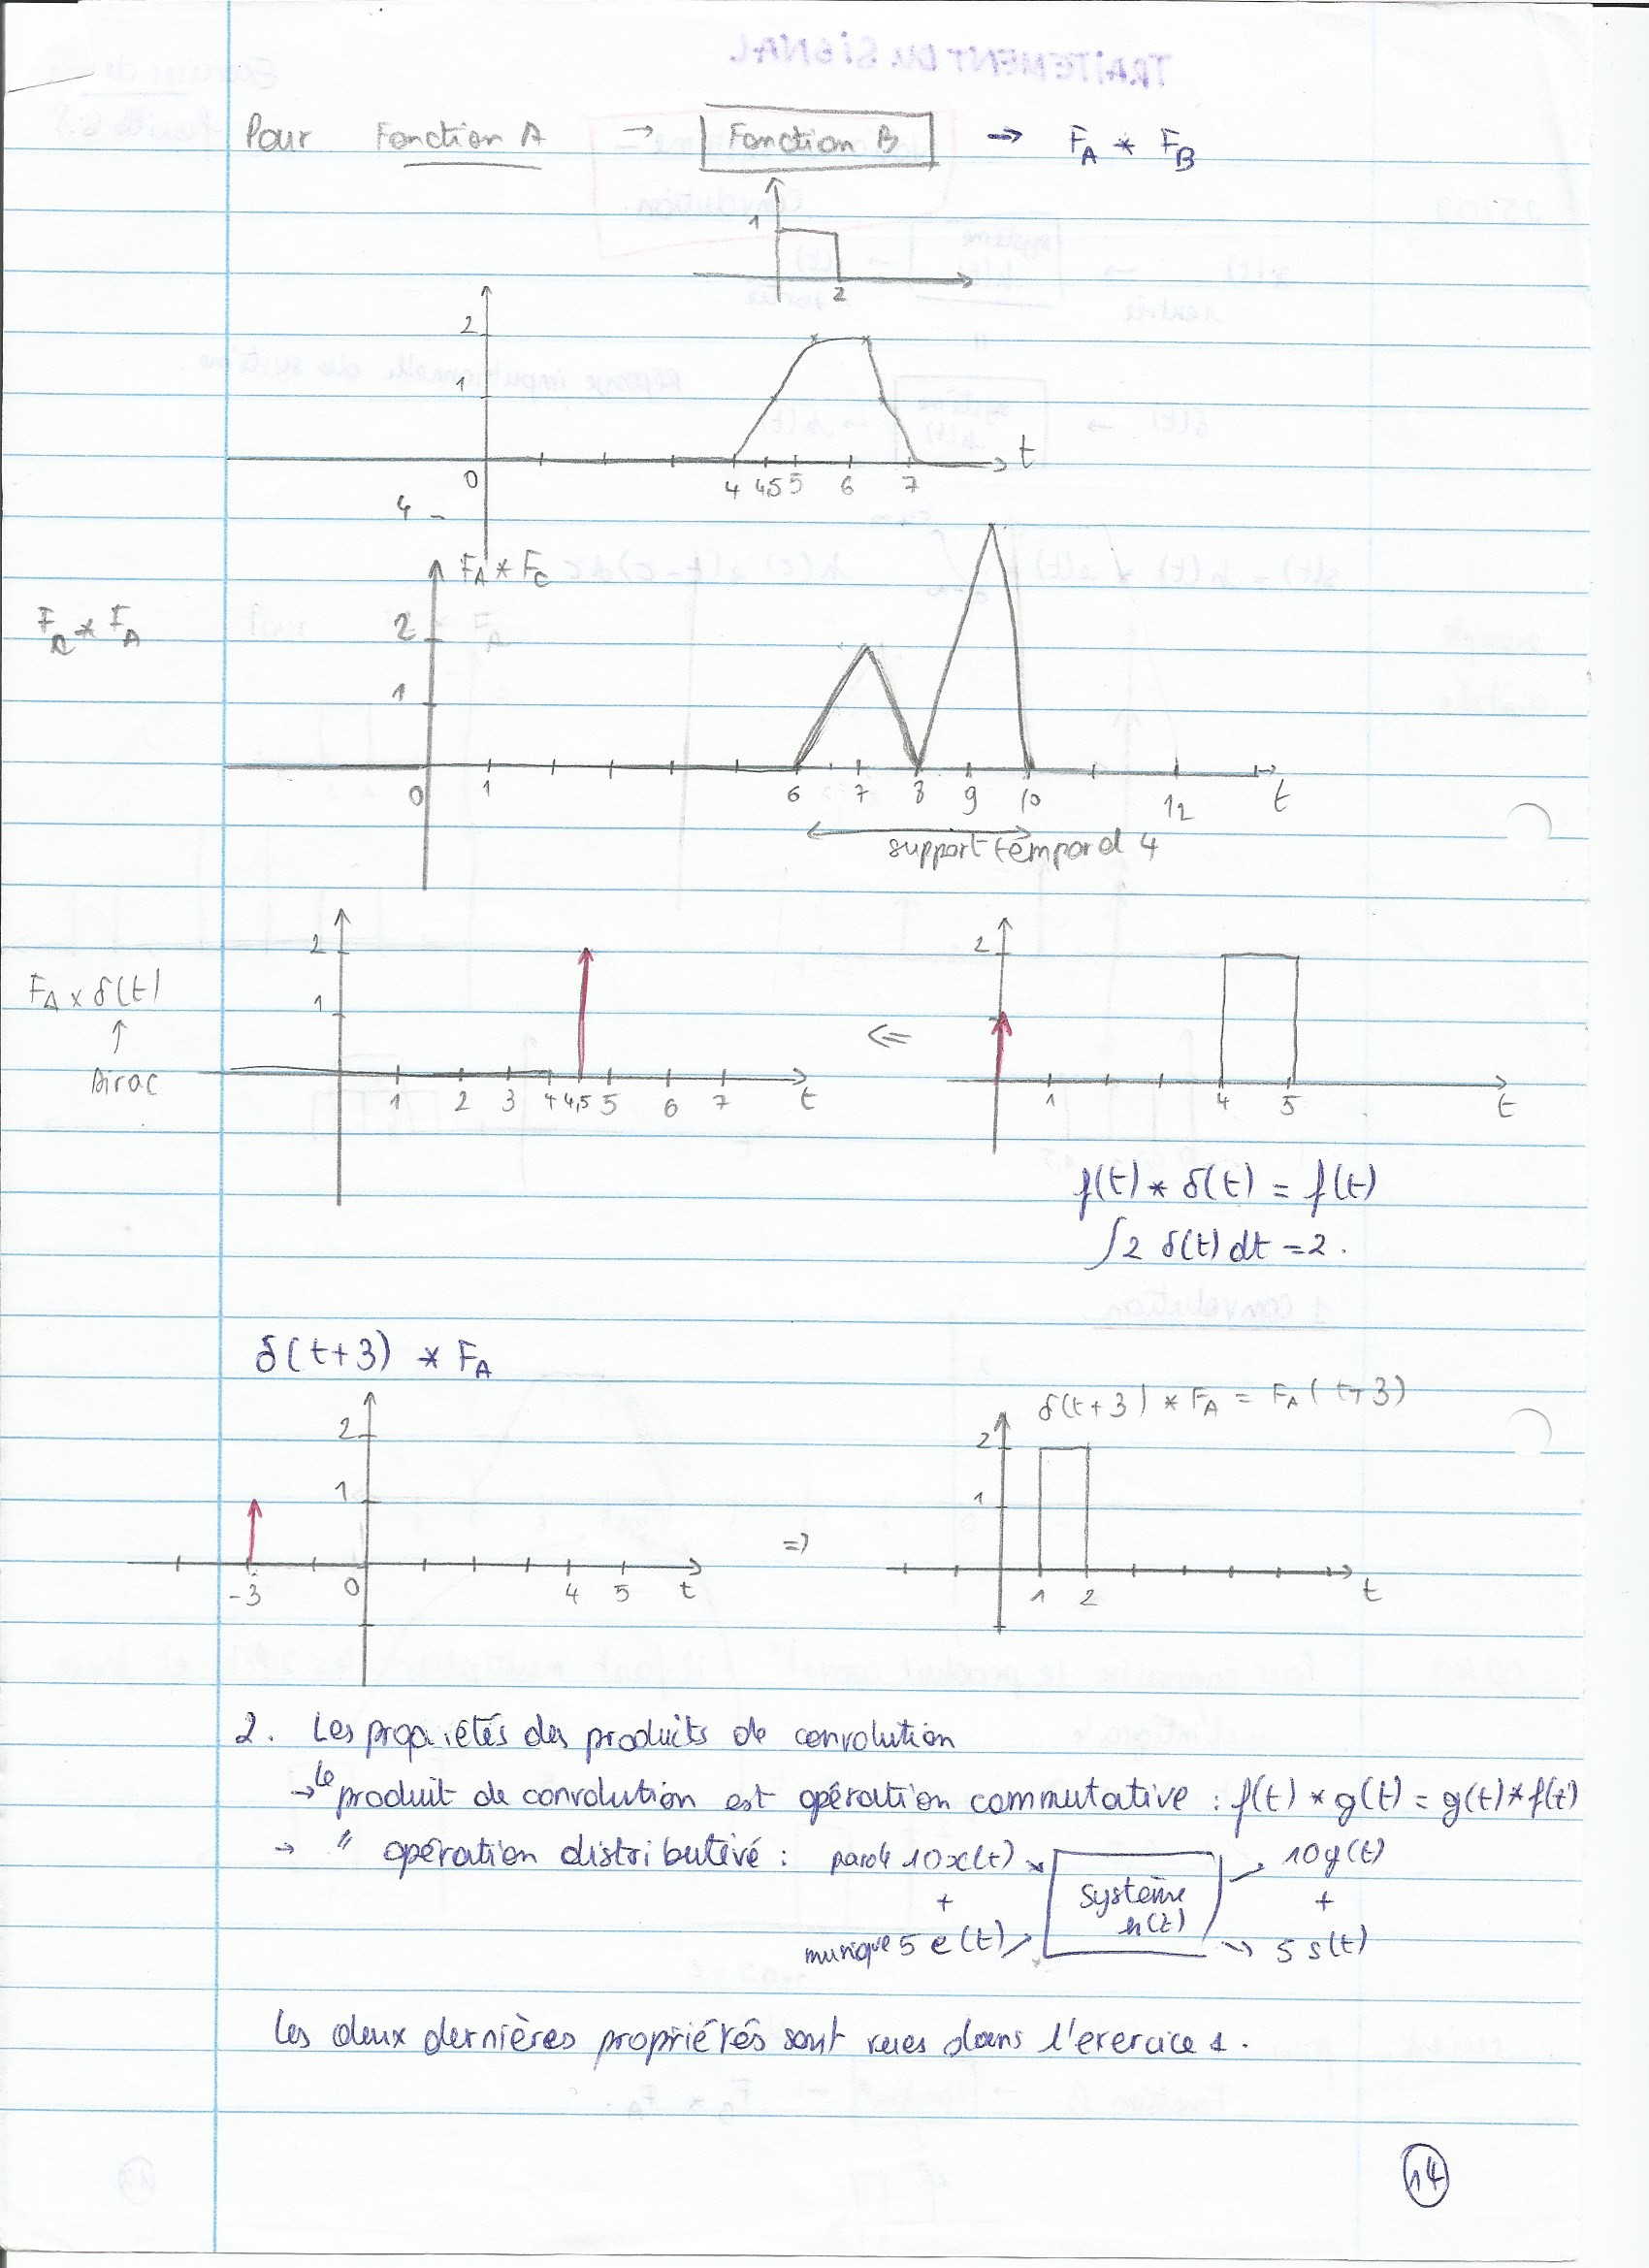 Pour Fonction A → Fonction B → F_A * F_B
1
2
2
1
0 4 4,5 5 6 7 t
4
F_A * F_C
F_C * F_A
2
1
0 1 6 7 8 9 10 12 t
support temporel 4
F_A × δ(t)
↑
Dirac
2
1
1 2 3 4 4,5 5 6 7 t
⇐
2
1 4 5 t
f(t) * δ(t) = f(t)
∫2 δ(t) dt = 2.
δ(t+3) * F_A
2
1
-3 0 4 5 t
=>
δ(t+3) * F_A = F_A(t+3)
2
1
1 2 t
2. Les propriétés des produits de convolution
→ le produit de convolution est opération commutative : f(t) * g(t) = g(t) * f(t)
→ " opération distributive : parole 10x(t) 10y(t)
+ système h(t) +
musique 5 e(t) 5 s(t)
Les deux dernières propriétés sont vues dans l'exercice 1.
14